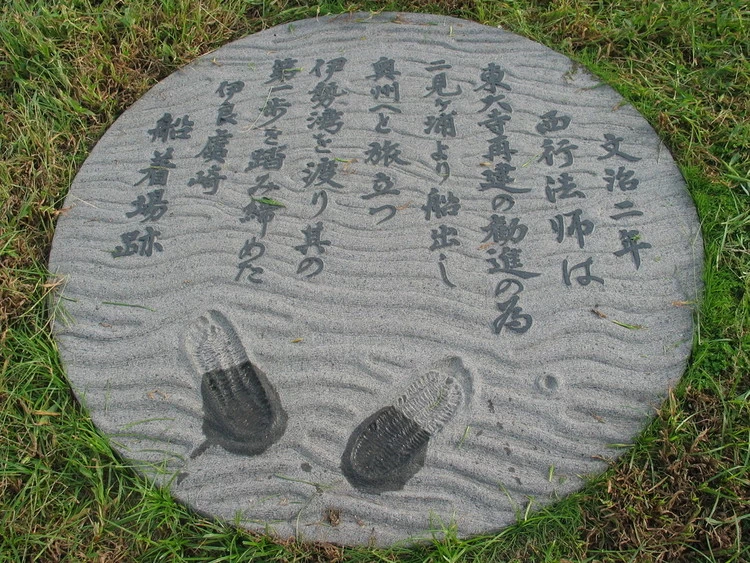 文治二年
西行法師は
東大寺再建の勧進の為
二見ヶ浦より船出し
奥州へと旅立つ
伊勢湾を渡り其の
第一歩を踏み締めた
伊良虞崎
船着場跡